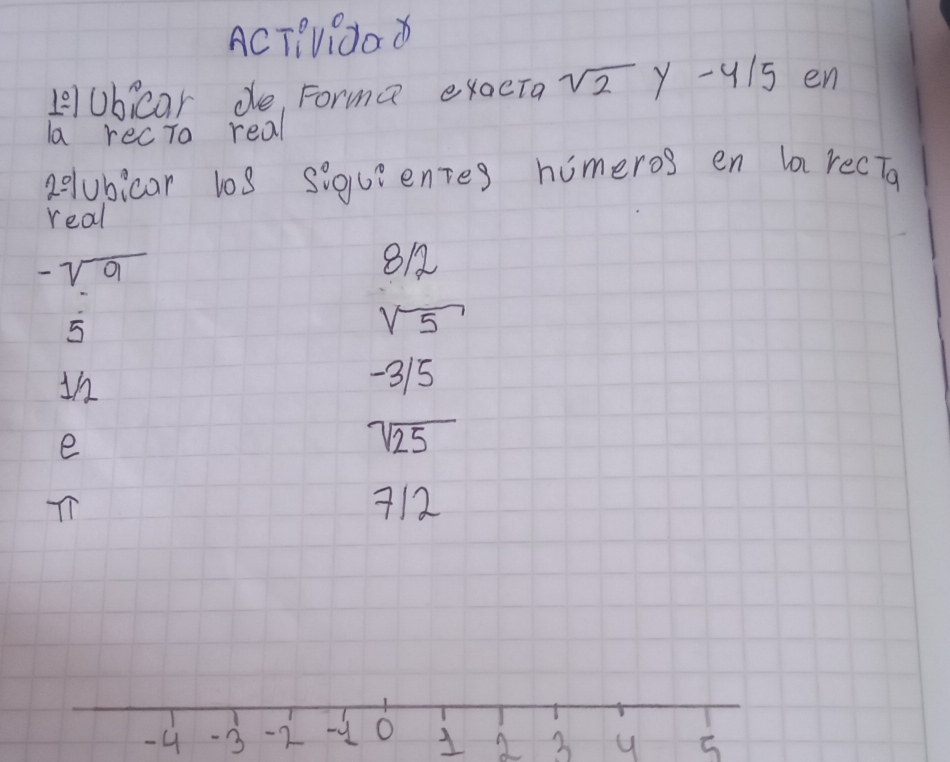 ACTividad
1º) Ubicar de Forma exacta √2 y -4/5 en
la recTa real
2º) Ubicar los Siguientes números en la recTa
real
-√9 8/2
5 √5
1/2 -3/5
e √25
π 7/2
-4 -3 -2 -1 0 1 2 3 4 5